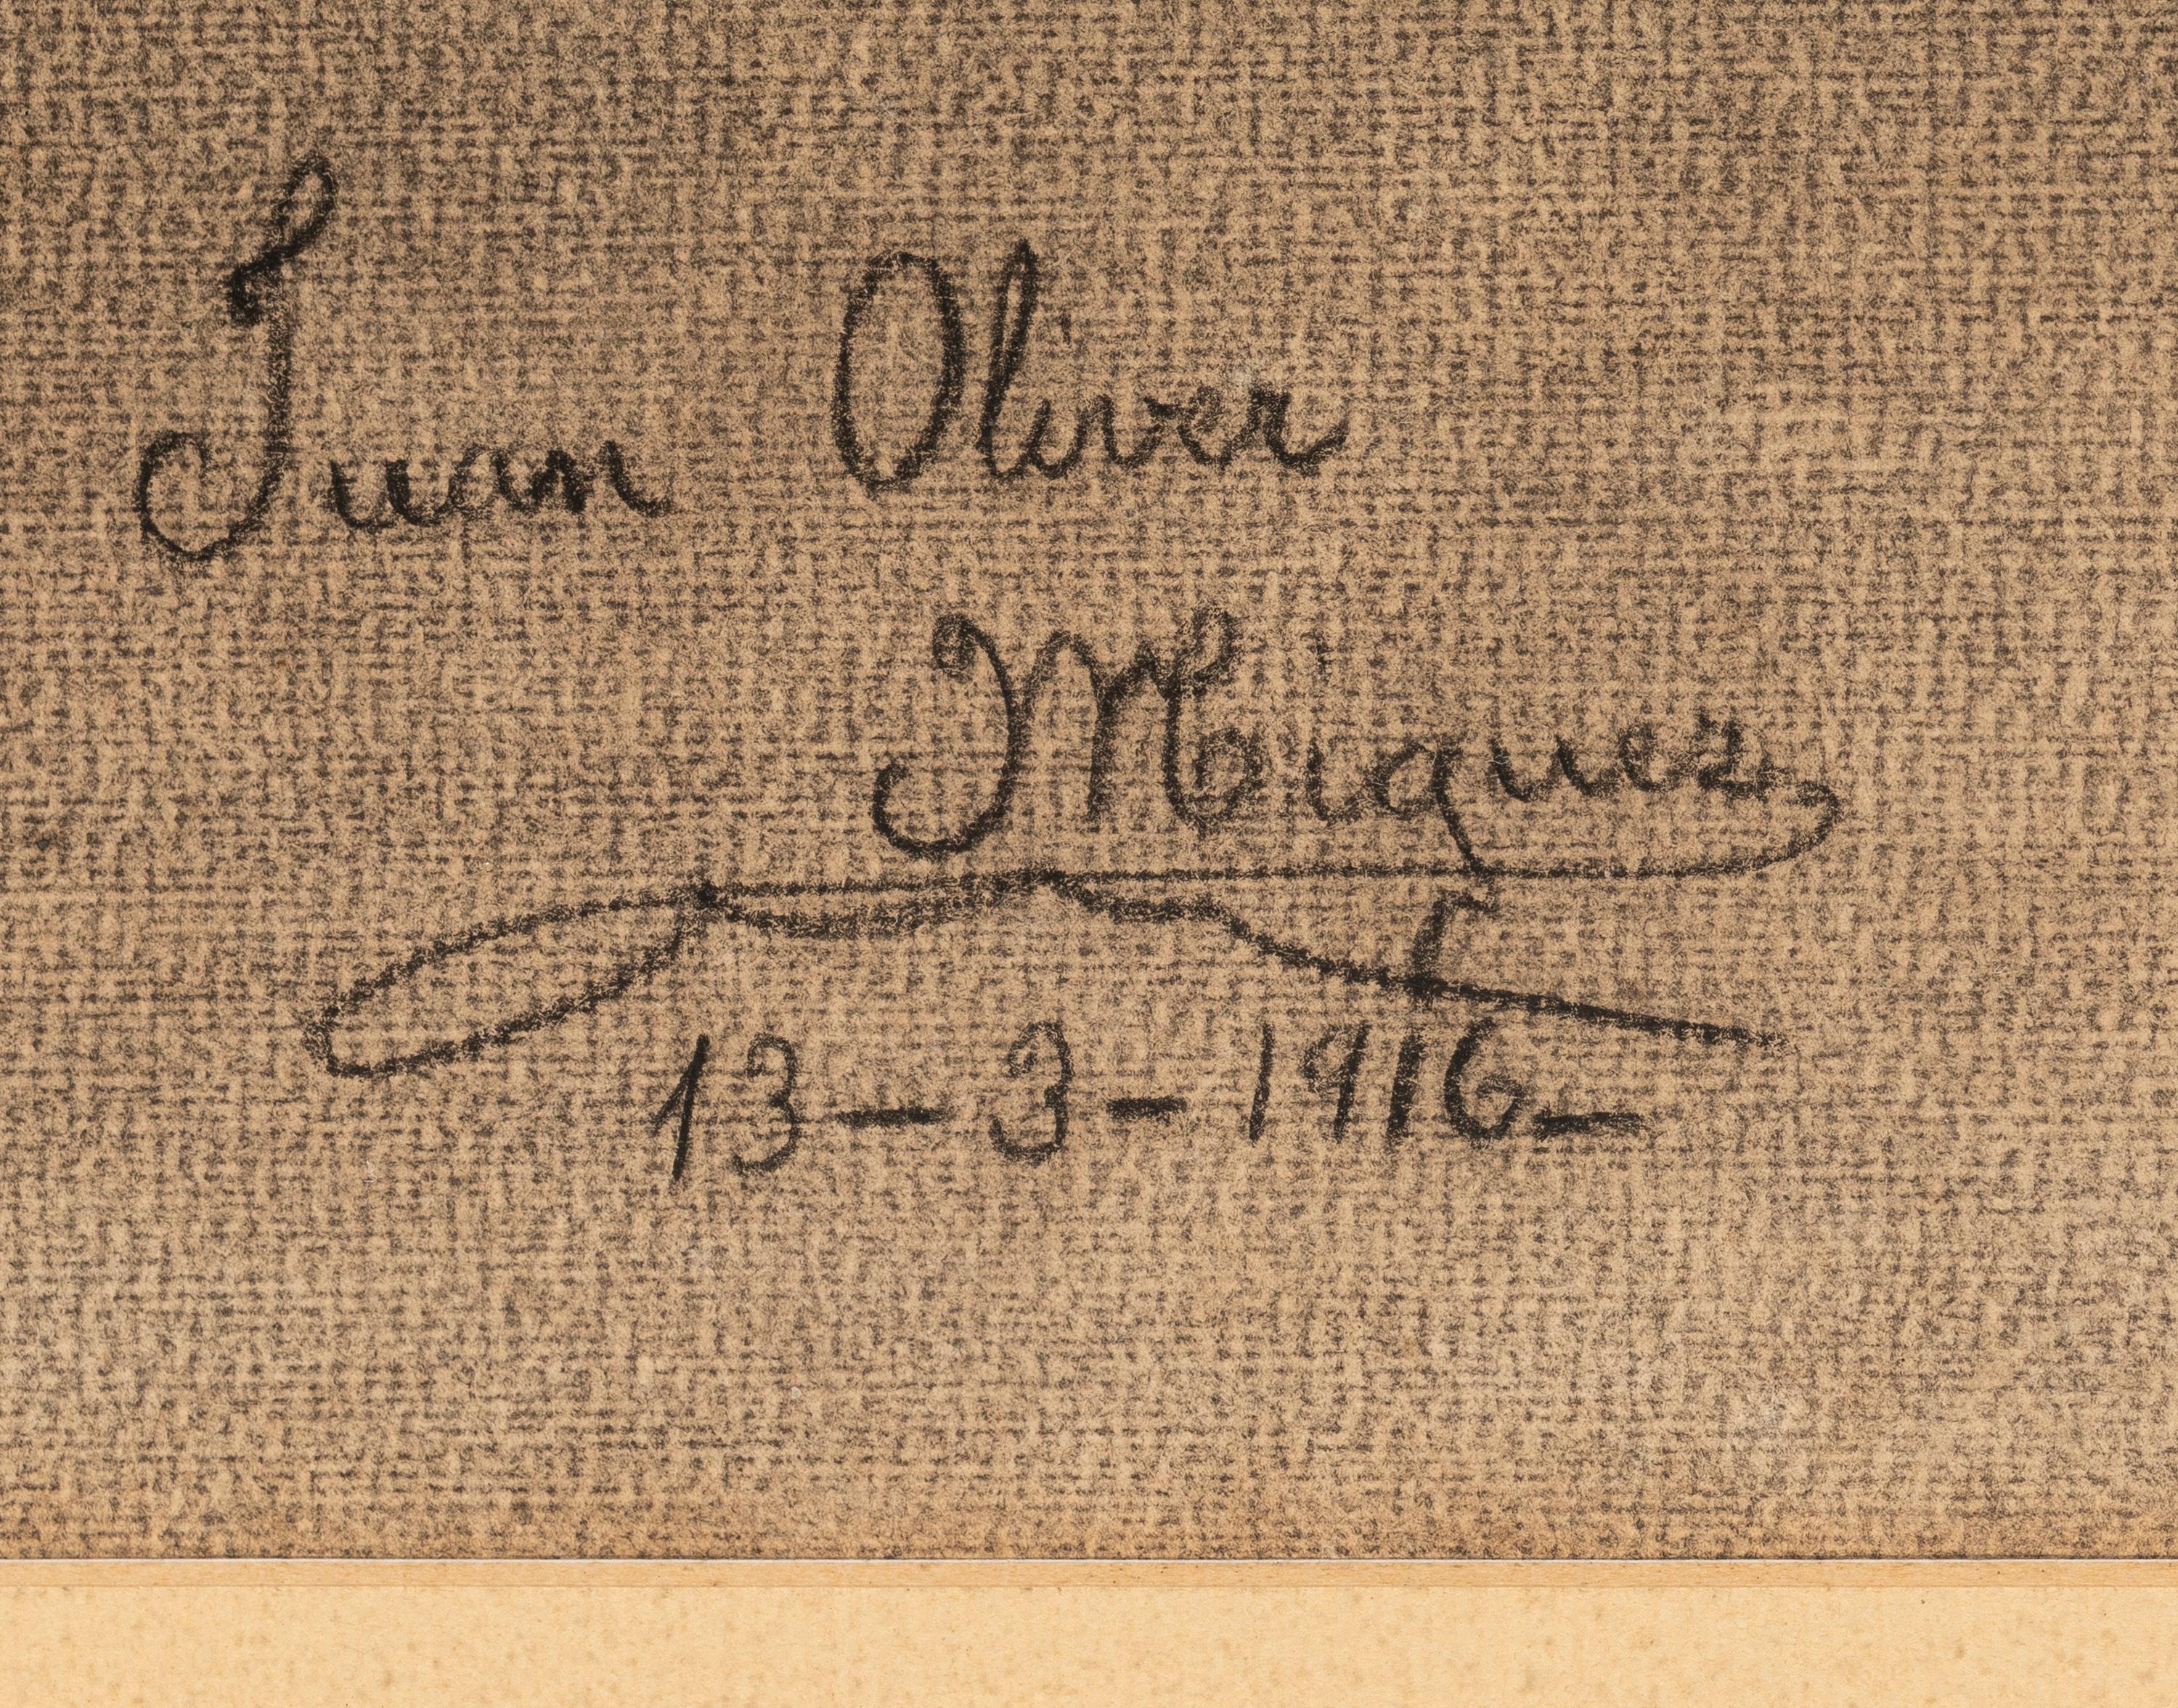 Juan Oliver
Maiquez
13-3-1916-